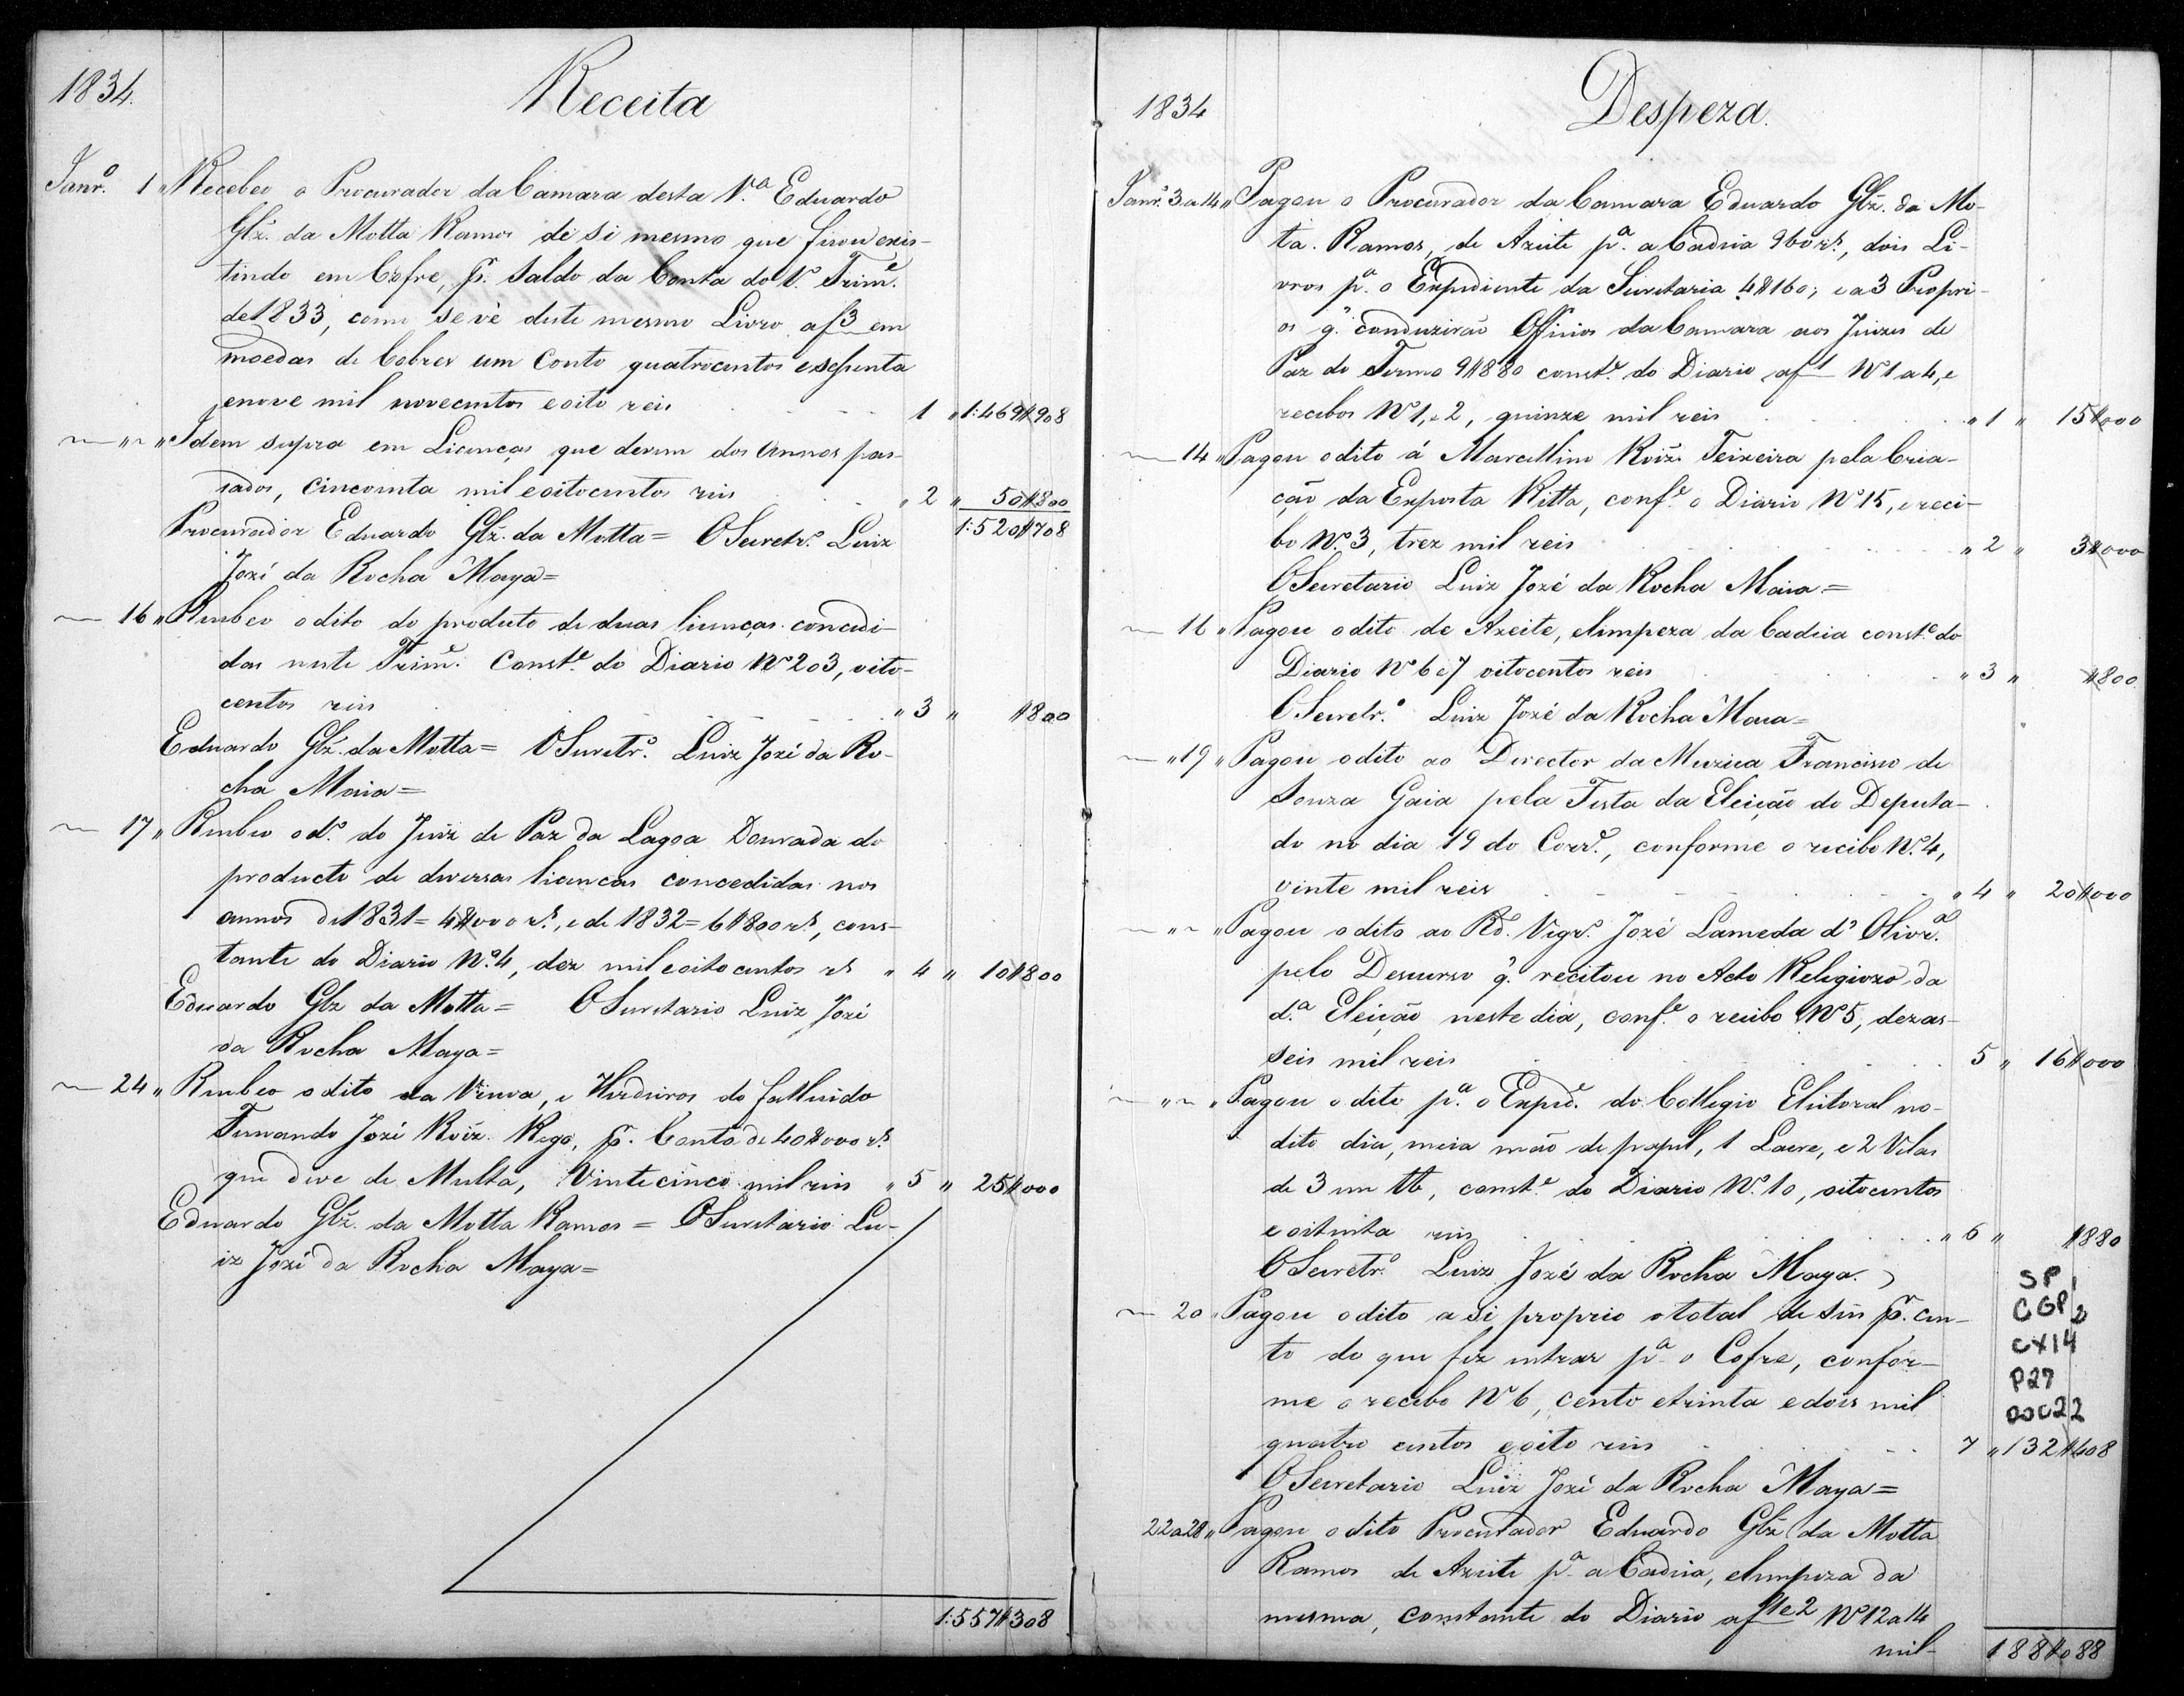 1834.
Receita
Janr.º 1 " Recebeo o Procurador da Camara desta V.ª Eduardo
Glz̃. da Motta Ramos de si mesmo que ficou exis-
tindo em Cofre, pr. saldo da Conta do 1.º Trim.e
de 1833, como se vê deste mesmo Livro af 3 em
moedas de Cobre um Conto quatrocentos e sessenta
e nove mil novecentos e oito reis 1 " 1:469$908
" " Idem supra em Licenças que derem dos Annos pas-
sados, cincoenta mil e oitocentos reis " 2 " 50$800
Procurador Eduardo Glz̃. da Motta = O Secretr.º Luiz 1:520$708
Jozé da Rocha Maya=
16 " Recebeo o dito do producto de duas licenças concedi-
das neste Trim.e Const.e do Diario Nº 2 o 3, oito-
centos reis " 3 " $800
Eduardo Glz̃. da Motta= O Secretr.º Luiz Jozé da Ro-
cha Maia=
17 " Recebeo o d.º do Juiz de Paz da Lagoa Dourada do
producto de diversas licencas concedidas nos
annos de 1831= 4$000 rs., e de 1832= 6$800 rs, cons-
tante do Diario Nº 4, dez mil e oito centos rs " 4 " 10$800
Eduardo Glz da Motta= O Secretario Luiz Jozé
da Rocha Maya=
24 " Recebeo o dito da Viuva, e Herdeiros do fallecido
Fernando Jozé Roiz̃. Rego, pr. Conta de 40$000 rs
que deve de Multa, Vinte cinco mil reis " 5 " 25$000
Eduardo Glz̃. da Motta Ramos = O Secretario Lu-
iz Jozé da Rocha Maya=
1:557$308
1834
Despeza.
Janr.º 3 a 14 " Pagou o Procurador da Camara Eduardo Glz̃. da Mo-
ta. Ramos, de Azeite p.ª a Cadeia 960 rs., dois Li-
vros p.ª o Expediente da Secretaria 4$160; e a 3 Propri-
os q̃. conduzirão Officios da Camara aos Juizes de
Paz do Termo 9$880 const.e do Diario af 1 Nº 1 a 4, e
recibos Nº 1, e 2, quinze mil reis " 1 " 15$000
14 " Pagou o dito á Marcellino Roiz̃ Teixeira pela Crea-
ção da Exposta Ritta, conf.e o Diario Nº 15, e reci-
bo Nº 3, trez mil reis " 2 " 3$000
O Secretario Luiz Jozé da Rocha Maia=
16 " Pagou o dito de Azeite, e limpeza da Cadeia const.e do
Diario Nº 6 e 7 oitocentos reis " 3 " $800
O Secretr.º Luiz Jozé da Rocha Maia=
" 19 " Pagou o dito ao Director da Muzica Francisco de
Souza Gaia pela Festa da Eleição do Deputa-
do no dia 19 do Corr.e, conforme o recibo Nº 4,
vinte mil reis " 4 " 20$000
" " Pagou o dito ao Rd.º Vigr.º Jozé Lameda d'Olivr.ª
pelo Descurso q̃. recitou no Acto Religiozo da
d.ª Eleição neste dia, conf.e o recibo Nº 5, dezas-
seis mil reis 5 " 16$000
" " Pagou o dito p.ª o Exped.e do Collegio Eleitoral no
dito dia, meia mão de papel, 1 Lacre, e 2 Velas
de 3 em lb, const.e do Diario Nº 10, oitocentos
e oitenta reis " 6 " $880
O Secretr.º Luiz Jozé da Rocha Maya.
20 " Pagou o dito a si proprio o total de seis pr. cen-
to do que fez entrar p.ª o Cofre, confor-
me o recibo Nº 6, cento e trinta e dois mil
quatro centos e oito reis 7 " 132$408
O Secretario Luiz Jozé da Rocha Maya=
22 a 28 " Pagou o dito Procurador Eduardo Glz̃ da Motta
Ramos de Azeite p.ª a Cadeia, e limpeza da
mesma, constante do Diario af 1 e 2 Nº 12 a 14
mil- 188$088
SP
CGP2
CX14
P27
DOC22